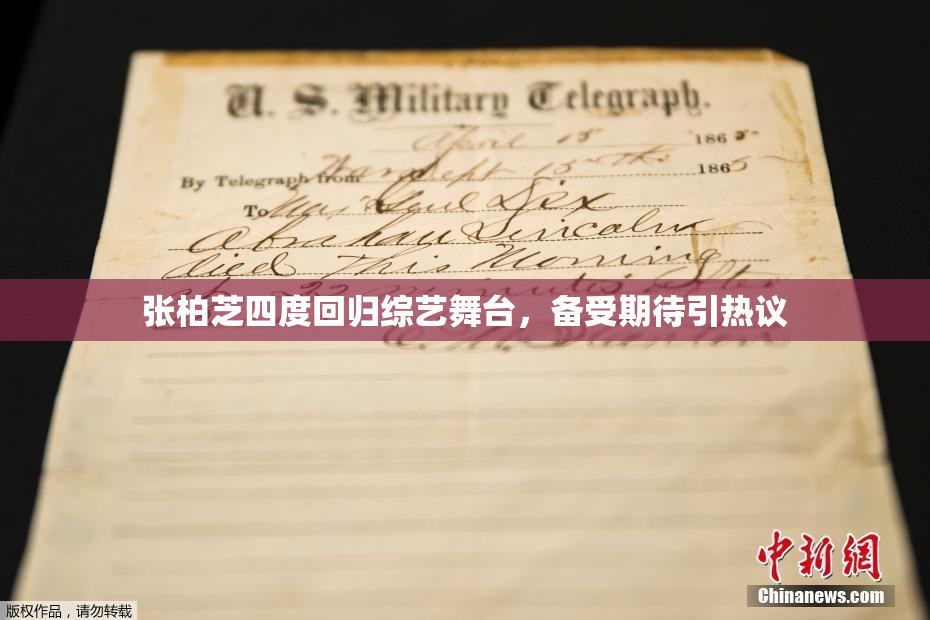 U. S. Military Telegraph.
April 15 1865
By Telegraph from War Dept 15th 1865
To Maj Genl Dix
Abraham Lincoln
died This Morning
at 22 minutes after
张柏芝四度回归综艺舞台，备受期待引热议
中新网
Chinanews.com
版权作品，请勿转载